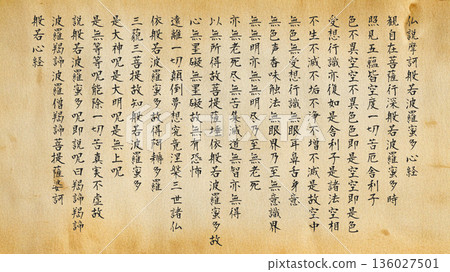 仏説摩訶般若波羅蜜多心経
観自在菩薩行深般若波羅蜜多時
照見五蘊皆空度一切苦厄舎利子
色不異空空不異色色即是空空即是色
受想行識亦復如是舎利子是諸法空相
不生不滅不垢不浄不増不減是故空中
無色無受想行識無眼耳鼻舌身意
無色声香味触法無眼界乃至無意識界
無無明亦無無明尽乃至無老死
亦無老死尽無苦集滅道無智亦無得
以無所得故菩提薩埵依般若波羅蜜多故
心無罣礙無罣礙故無有恐怖
遠離一切顛倒夢想究竟涅槃三世諸仏
依般若波羅蜜多故得阿耨多羅
三藐三菩提故知般若波羅蜜多
是大神呪是大明呪是無上呪
是無等等呪能除一切苦真実不虚故
説般若波羅蜜多呪即説呪曰羯諦羯諦
波羅羯諦波羅僧羯諦菩提薩婆訶
般若心経
136027501